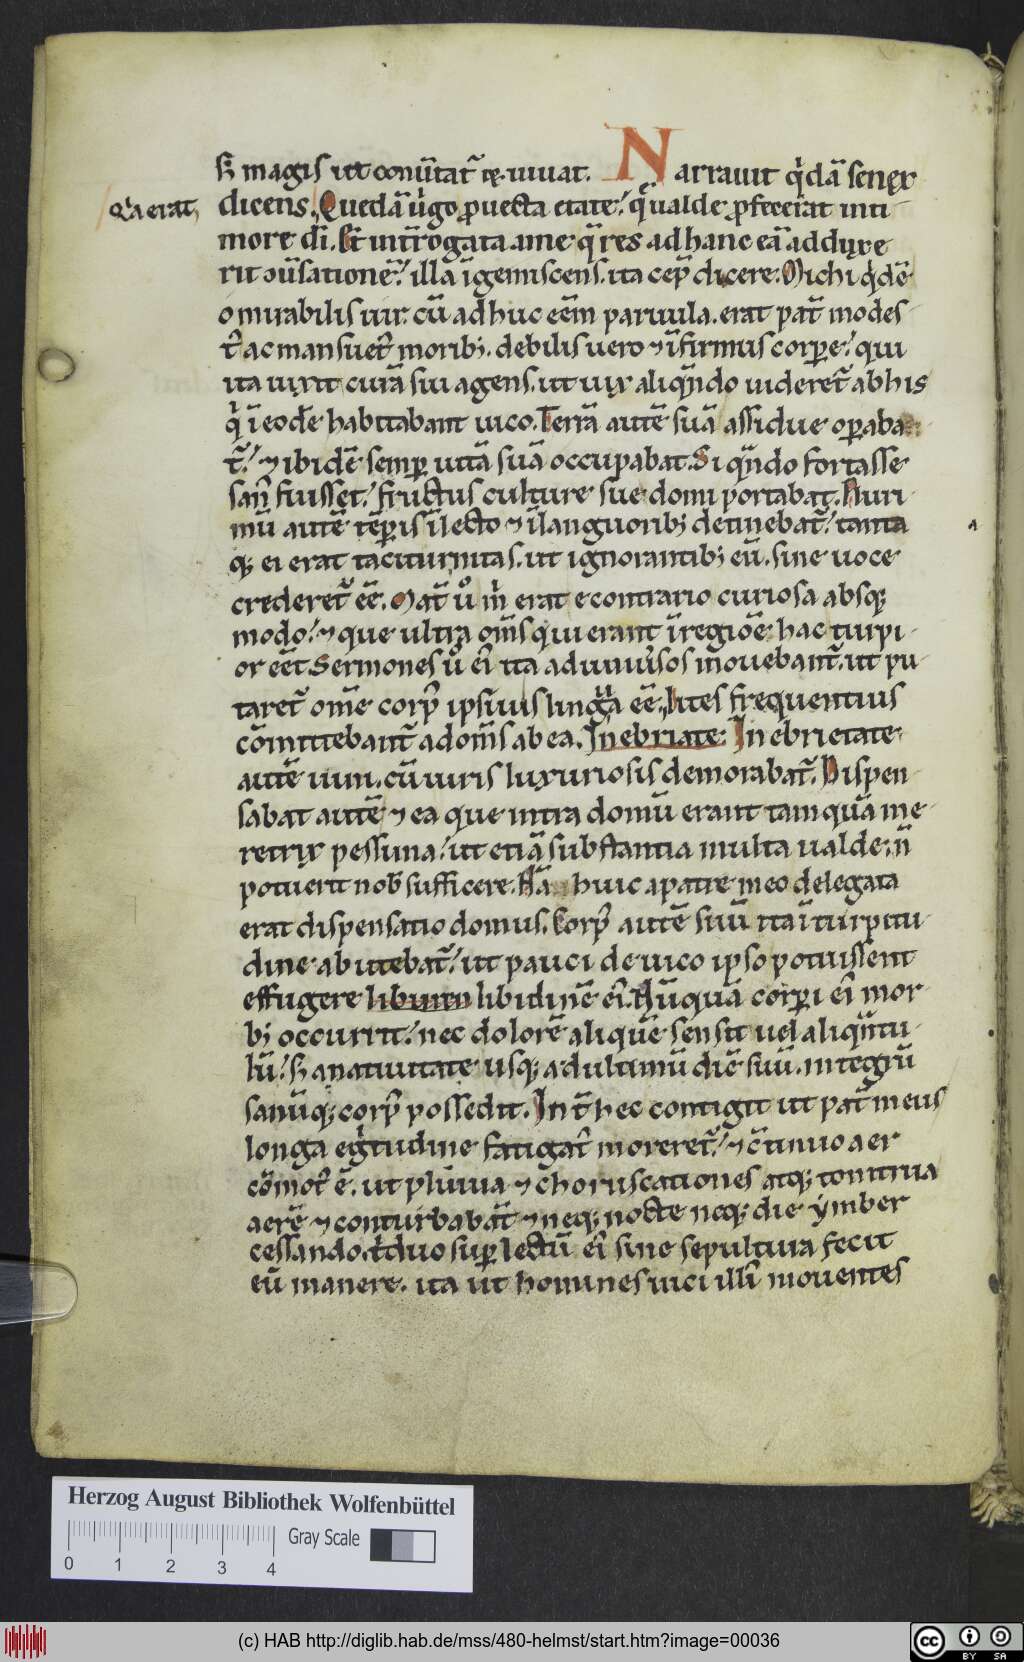 sꝫ magis ut conũtat᷑ ⁊ uiuat. Narrauit q̇dā senex
Q̇a erat, dicens. Quedā uͥgo ꝓuecta etate; qͣ ualde ꝓfecerat in ti-
more dī. Et int̄rogata a me qͣ res ad hanc eā adduxe
rit ɔuͥsationē; illa īgemiscens. ita cep̄ dicere. Michi q̇dē
o mirabilis uir. cū adhuc eēm paruula. erat pat̄ modes-
t᷒ ac mansuet᷒ moribꝫ. debilis uero ⁊ īfirmus corꝑe; qui
ita uixit curā sui agens. ut uix aliqͣndo uideret᷑ ab his
q̇ ī eodē habitabant uico. Terrā autē suā assidue oꝑaba
t᷑; ⁊ ibidē semꝑ uitā suā occupabat. Si qͣndo fortasse
san᷒ fuisset; fructus culture sue domi portabat. Pluri-
mū autē tēꝑis ī lecto ⁊ ī languoribꝫ detinebat᷑; tanta
qꝫ ei erat taciturnitas. ut ignorantibꝫ eū. sine uoce
crederet᷑ eē. Mat̄ uͦ m̄ erat econtrario curiosa absqꝫ
modo; ⁊ que ultra om̄s qui erant ī regiōe. hac turpi-
or eēt. Sermones uͦ ei᷒ ita ad uniuͥsos mouebant᷑. ut pu-
taret᷑ om̄e corp᷒ ipsius lingua eē. Lites frequentius
cōmittebant᷑ ad om̄s ab ea. In ebriate. In ebrietate
autē uini. cū uiris luxuriosis demorabat᷑. Dispen
sabat autē ⁊ ea que intra domū erant tamquā me-
retrix pessima; ut etiā substantia multa ualde. n̄
potuerit nob̄ sufficere. Nā huic a patre meo delegata
erat dispensatio domus. Corp᷒ autē suū ita ī turpitu-
dine abutebat᷑; ut pauci de uico ipso potuissent
effugere libuien libidinē ei᷒. Nūquā corꝑi ei᷒ mor-
bꝫ occurrit; nec dolorē aliquē sensit uel aliqͣntu-
lū; sꝫ a natiuitate usqꝫ ad ultimū diē suū. integrū
sanūqꝫ corp᷒ possedit. Int̄ hec contigit ut pat̄ meus
longa egͥtudine fatigat᷒ moreret᷑; ⁊ ɔtinuo aer
cōmot᷒ ē. ut pluuia ⁊ choruscationes atqꝫ tonitrua
aerē ⁊ conturbabāt ⁊ neqꝫ nocte neqꝫ die ẏmber
cessando. tͥduo suꝑ lectū ei᷒ sine sepultura fecit
eū manere. ita ut homines uici illi᷒ mouentes
Herzog August Bibliothek Wolfenbüttel
Gray Scale
0 1 2 3 4
(c) HAB http://diglib.hab.de/mss/480-helmst/start.htm?image=00036
cc BY SA